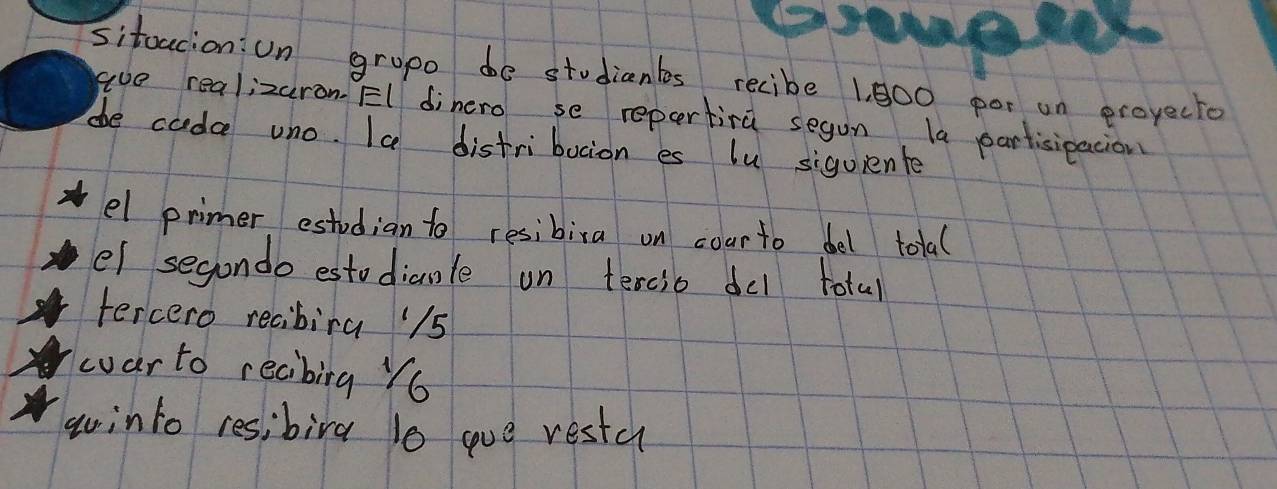 situacion: un grupo de studiantes recibe 1.800 por un proyecto
que realizaron. El dinero se repartira segun la partisipacion
de cada uno. la distribucion es la siguiente
★ el primer estudiante resibira un cuarto del total
★ el segundo estudiante un tercio del total
★ tercero recibira 1/5
★ cuarto recibira 1/6
★ quinto resibira lo que resta